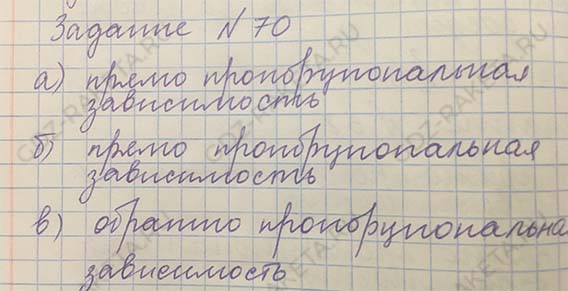 Задание N 70
а) прямо пропорциональная
зависимость
б) прямо пропорциональная
зависимость
в) обратно пропорциональна
зависимость
GDZ-RAKETA.RU